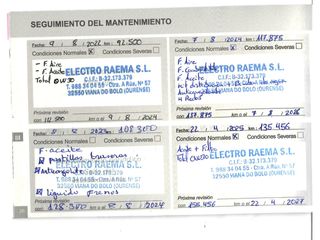 SEGUIMIENTO DEL MANTENIMIENTO
Fecha: 9 / 8 / 2022 km: 92.500
Condiciones Normales Condiciones Severas
- F. Aire
- F. Aceite
Total
ELECTRO RAEMA S.L.
C.I.F.: B-32.173.379
T. 988 34 04 55 - Ctra. A Rúa, Nº 57
32550 VIANA DO BOLO (OURENSE)
Próxima revisión
con: 112.500 km o el 9 / 8 / 2024
Fecha: 7 / 8 / 2024 km: 117.875
Condiciones Normales Condiciones Severas
F. Aire
F. Aceite
ELECTRO RAEMA S.L.
C.I.F.: B-32.173.379
T. 988 34 04 55 - Ctra. A Rúa, Nº 57
32550 VIANA DO BOLO (OURENSE)
Próxima revisión
con: 137.875 km o el 7 / 8 / 2026
km: 108.500
Condiciones Normales Condiciones Severas
F. aceite
pastillas traseras
Anticongelante
liquido frenos
ELECTRO RAEMA S.L.
C.I.F.: B-32.173.379
T. 988 34 04 55 - Ctra. A Rúa, Nº 57
32550 VIANA DO BOLO (OURENSE)
Próxima revisión
con: 128.500 km o el
Fecha: 22 / 4 / 2025 km: 135.456
Condiciones Normales Condiciones Severas
Aceite + Filtro
ELECTRO RAEMA S.L.
C.I.F.: B-32.173.379
T. 988 34 04 55 - Ctra. A Rúa, Nº 57
32550 VIANA DO BOLO (OURENSE)
Próxima revisión
con: 155.456 km o el 22 / 4 / 2027